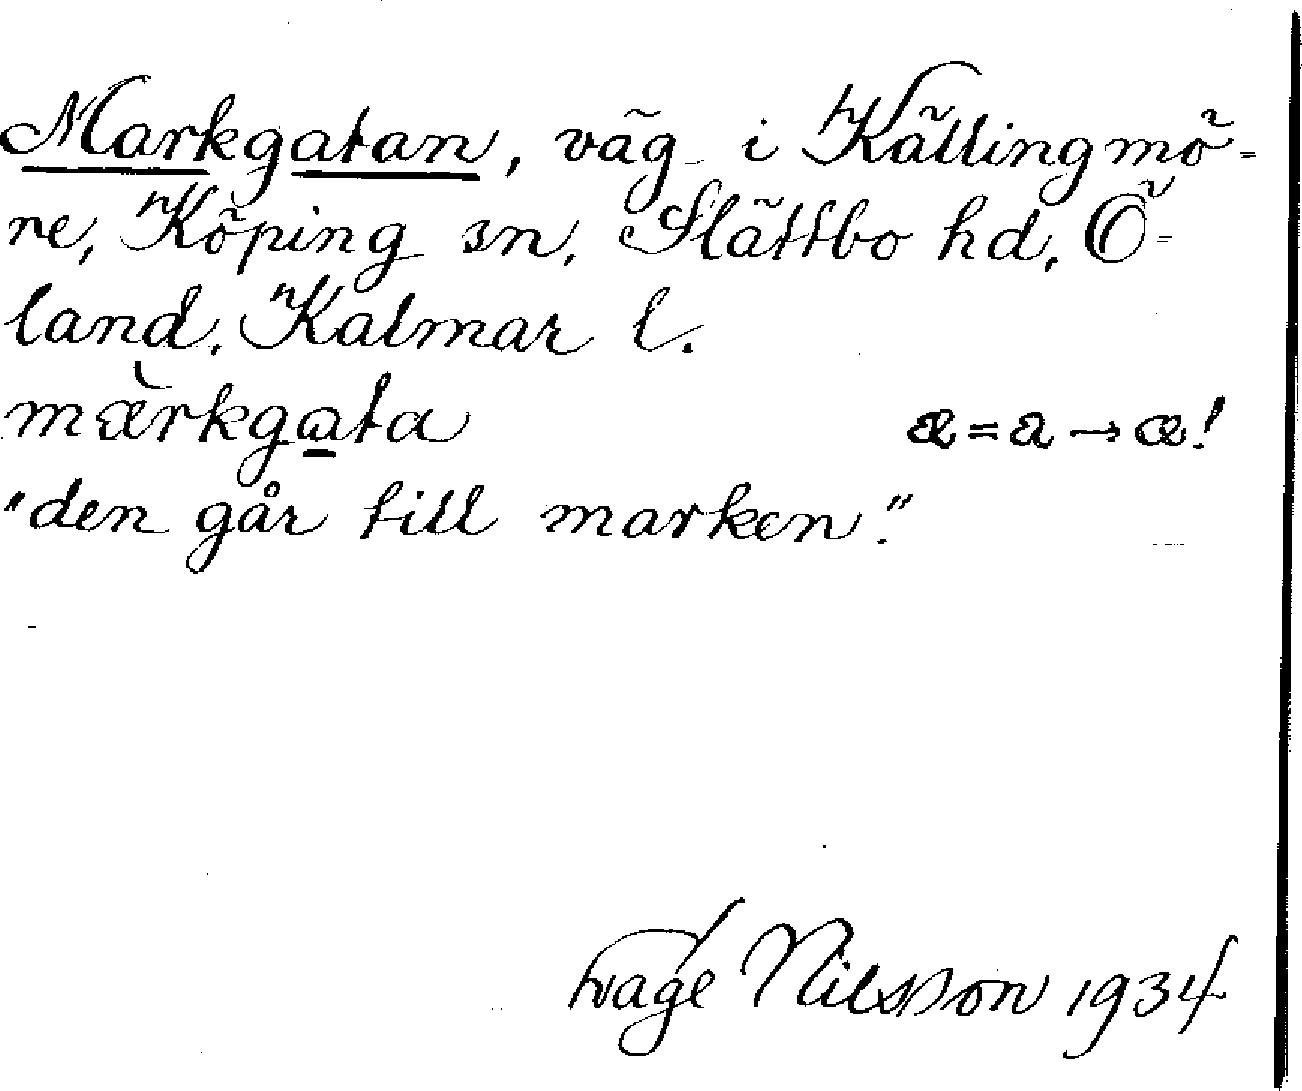 Markgatan, väg i Källingmö-
re, Köping sn, Slättbo hd, Ö-
land. Kalmar l.
mærkgata æ = a → œ!
"den går till marken."
Nilsson 1934